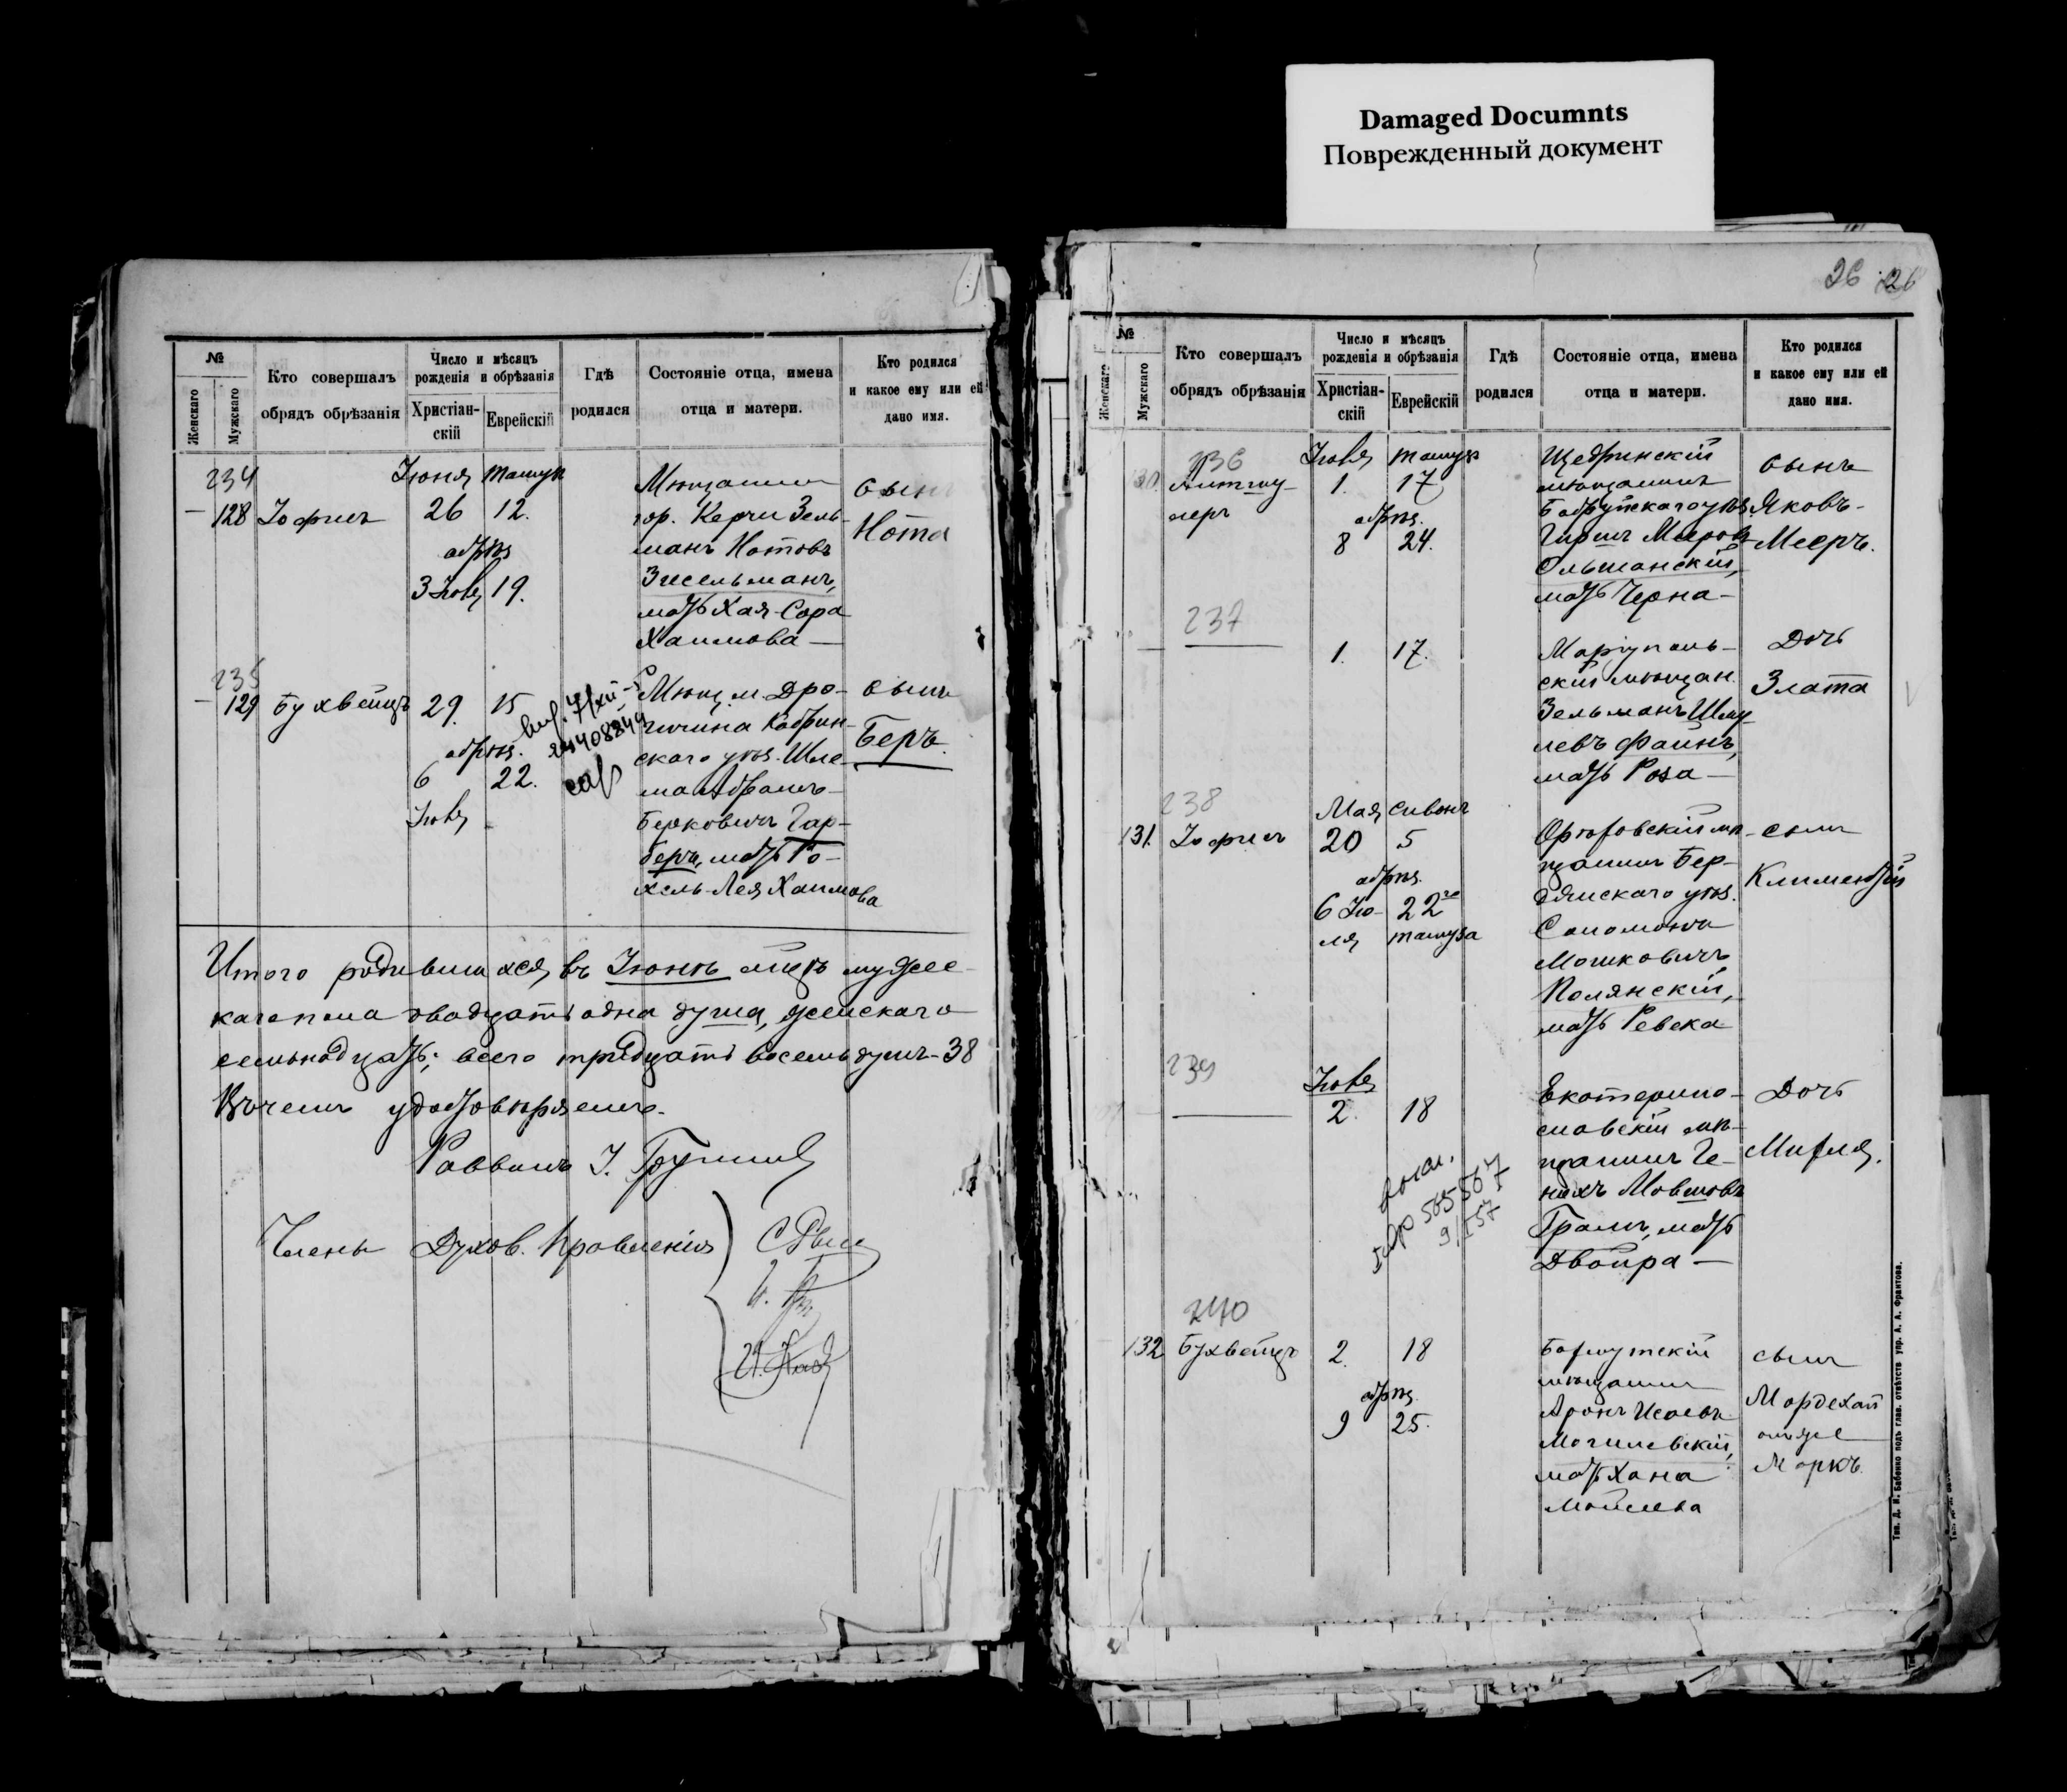 Damaged Documnts
Поврежденный документ
№
Женскаго
Мужскаго
Кто совершалъ
обрядъ обрѣзанія
Число и мѣсяцъ
рожденія и обрѣзанія
Христіан-
скій
Еврейскій
Гдѣ
родился
Состояніе отца, имена
отца и матери.
Кто родился
и какое ему или ей
дано имя.
234
Іюня
128 Іофисъ 26 12.
обрѣз.
3 Іюля 19.
Мѣщанинъ
гор. Керчи Зель-
манъ Нотовъ
Зисельманъ,
мать Хая-Сора
Хаимова —
сынъ
Нота
235
129 Бухвейцъ 29. 15
обрѣз.
6 22.
Іюля
Мѣщ. м. Дро-
гичина Кобрин-
скаго уѣз. Шле-
ма Абрамъ-
Берковичъ Гар-
беръ, мать Ро-
хель-Лея Хаимова
сынъ
Беръ.
Итого родившихся въ Іюнѣ мцѣ мужес-
каго пола двадцать одна душа, женскаго
семьнадцать; всего тридцать восемь душъ-38
Въ чемъ удостовѣряемъ.
Раввинъ
Члены Духов. Правленія
26 26
№
Женскаго
Мужскаго
Кто совершалъ
обрядъ обрѣзанія
Число и мѣсяцъ
рожденія и обрѣзанія
Христіан-
скій
Еврейскій
Гдѣ
родился
Состояніе отца, имена
отца и матери.
Кто родился
и какое ему или ей
дано имя.
236
Іюля
1. 17
обрѣз.
8 24.
Щедринскій
мѣщанинъ
Бобруйскаго уѣз.
Гиршъ Мееровъ
Ольшанскій,
мать Черна —
сынъ
Яковъ-
Мееръ.
237
1. 17.
Маріуполь-
скій мѣщан.
Зельманъ Шму-
левъ Файнъ,
мать Роза —
Дочь
Злата
238
Мая Сиванъ
131. Іофисъ 20 5
обрѣз.
6 Ію- 22го
ля тамуза
Орѣховскій мѣ-
щанинъ Бер-
дянскаго уѣз.
Соломонъ
Мошковичъ
Полянскій,
мать Ревека
сынъ
Климентій
239
Іюля
2. 18
Екатерино-
славскій мѣ-
щанинъ Ге-
нихъ Мовшовъ
мать
Двойра —
Дочь
240
132 Бухвейцъ 2. 18
обрѣз.
9 25.
мѣщанинъ
Аронъ Исаевъ
Могилевскій,
мать Хана
сынъ
Мордехай
онъ же
Маркъ.
Тип. Д. И. Бабенко подъ глав. отвѣтств упр. А. А. Франтова.